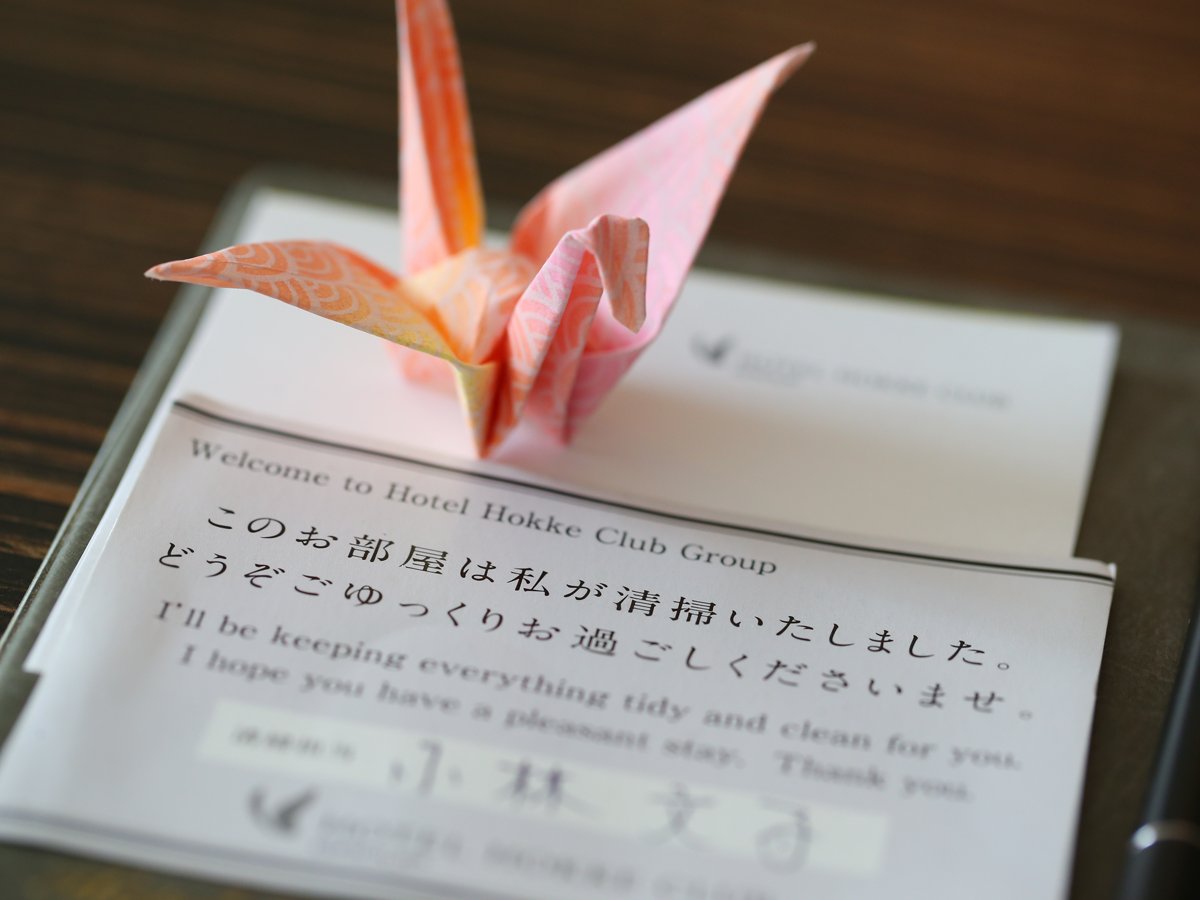 HOTEL HOKKE CLUB
Welcome to Hotel Hokke Club Group
このお部屋は私が清掃いたしました。
どうぞごゆっくりお過ごしくださいませ。
I'll be keeping everything tidy and clean for you.
I hope you have a pleasant stay. Thank you.
小林 文子